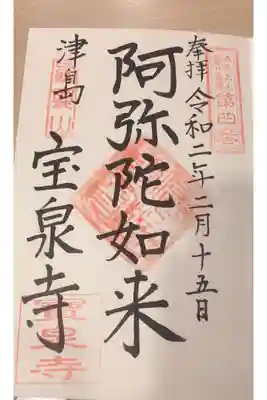 奉拝 令和二年二月十五日
阿弥陀如来
津島 宝泉寺
寶泉寺